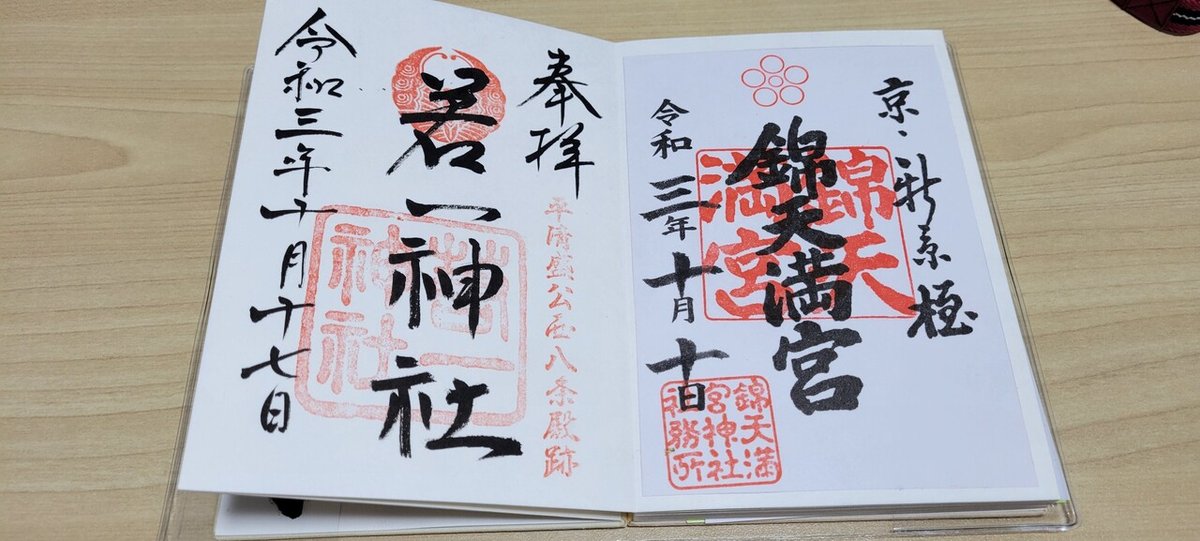 京・新京極
錦天満宮
錦天
満宮
令和三年十月十日
錦天満
宮神社
社務所
奉拝
平清盛公西八条殿跡
若一神社
若一
神社
令和三年十月十七日